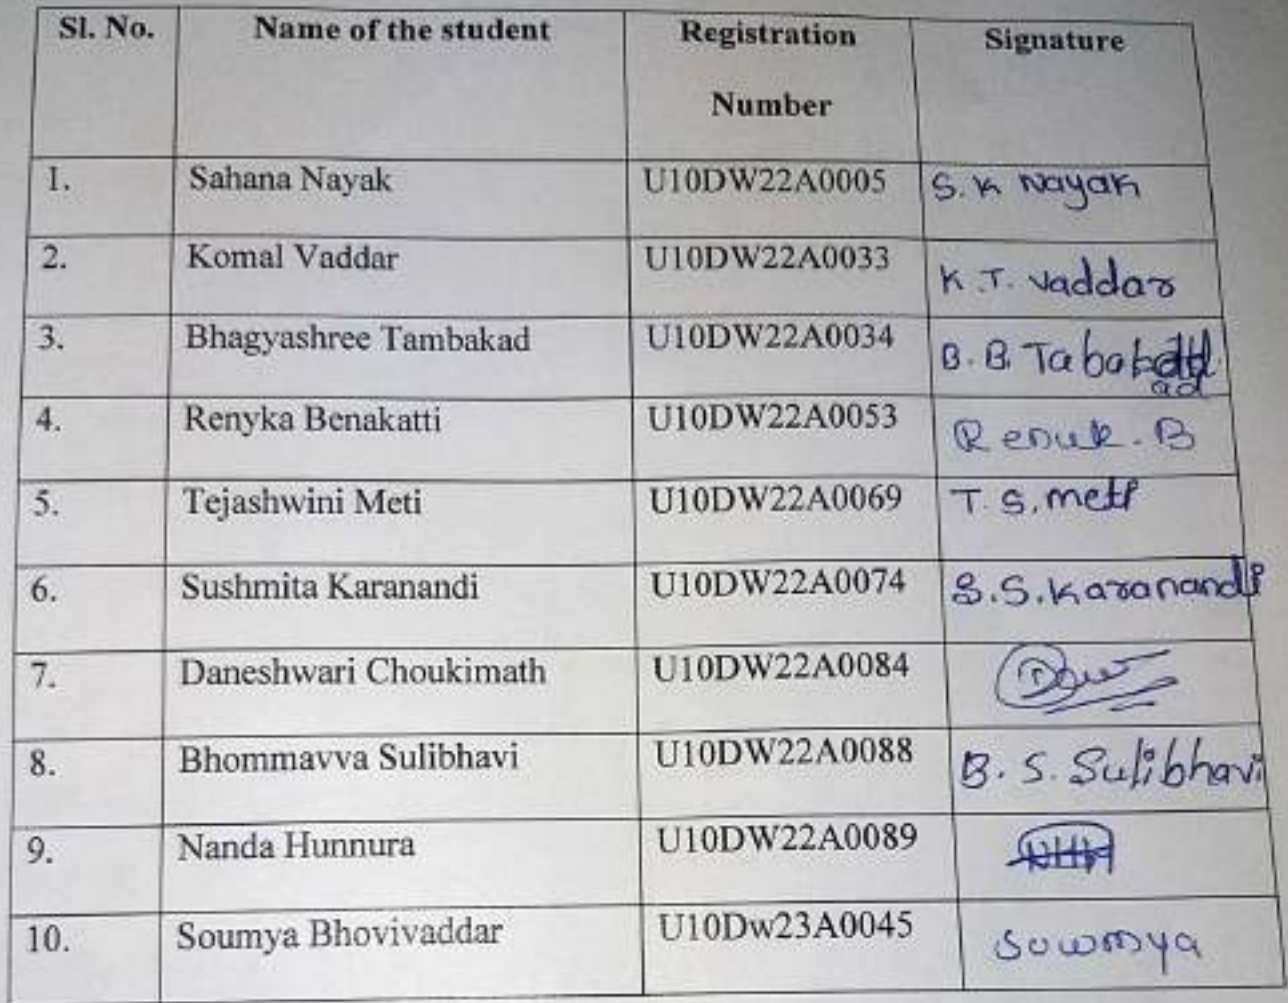 Sl. No. Name of the student Registration Number Signature
1. Sahana Nayak U10DW22A0005 S.K Nayak
2. Komal Vaddar U10DW22A0033 K.T. Vaddar
3. Bhagyashree Tambakad U10DW22A0034 B.B. Tabakad
4. Renyka Benakatti U10DW22A0053 Renuk.B
5. Tejashwini Meti U10DW22A0069 T.S.meti
6. Sushmita Karanandi U10DW22A0074 S.S.Karanandi
7. Daneshwari Choukimath U10DW22A0084
8. Bhommavva Sulibhavi U10DW22A0088 B.S.Sulibhavi
9. Nanda Hunnura U10DW22A0089
10. Soumya Bhovivaddar U10Dw23A0045 Sowmya